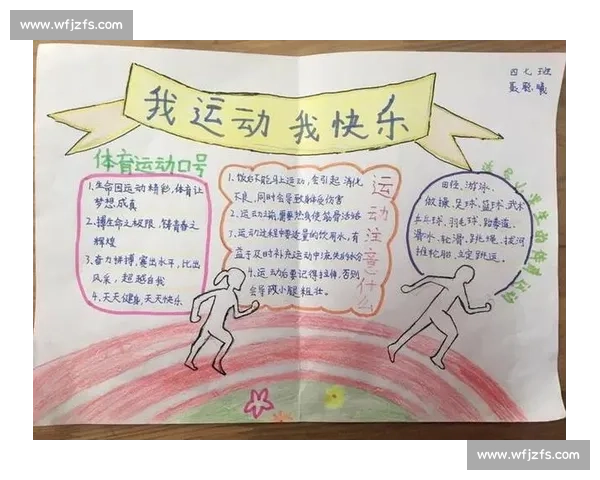 www.wfjzfs.com
四七班
我运动 我快乐
体育运动口号
1.生命因运动精彩,体育让
梦想成真
2.搏生命之极限,铸青春之
辉煌
3.奋力拼搏,赛出水平,比出
风采,超越自我
4.天天健身,天天快乐
运动注意什么
1.饭后不能马上运动,会引起消化
不良,同时会导致肺受伤害
2.运动之前需要热身使筋骨活络
3.运动过程中要适量的饮用水,有
益于及时补充运动中流失的水份
4.运动后要记得拉伸,否则
会导致小腿粗壮。
适合小学生的体育运动
田径、游泳、
做操、足球、篮球、武术
乒乓球、羽毛球、跆拳道、
滑冰、轮滑、跳绳、拔河
推轮胎、立定跳远。
www.wfjzfs.com